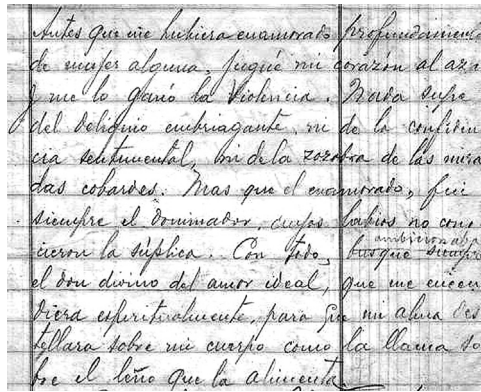 Antes que me hubiera enamorado profundamente
de mujer alguna, jugué mi corazón al aza
y me lo ganó la Violencia. Nada supe
del deliquio embriagante, ni de la confiden
cia sentimental, ni de la zozobra de las mira
das cobardes. Mas que el enamorado, fui
siempre el dominador, cuyos labios no cono
cieron la súplica. Con todo, ambicionaba
el don divino del amor ideal, que me encen
diera espiritualmente, para que mi alma des
tellara sobre mi cuerpo como la llama so
bre el leño que la alimenta